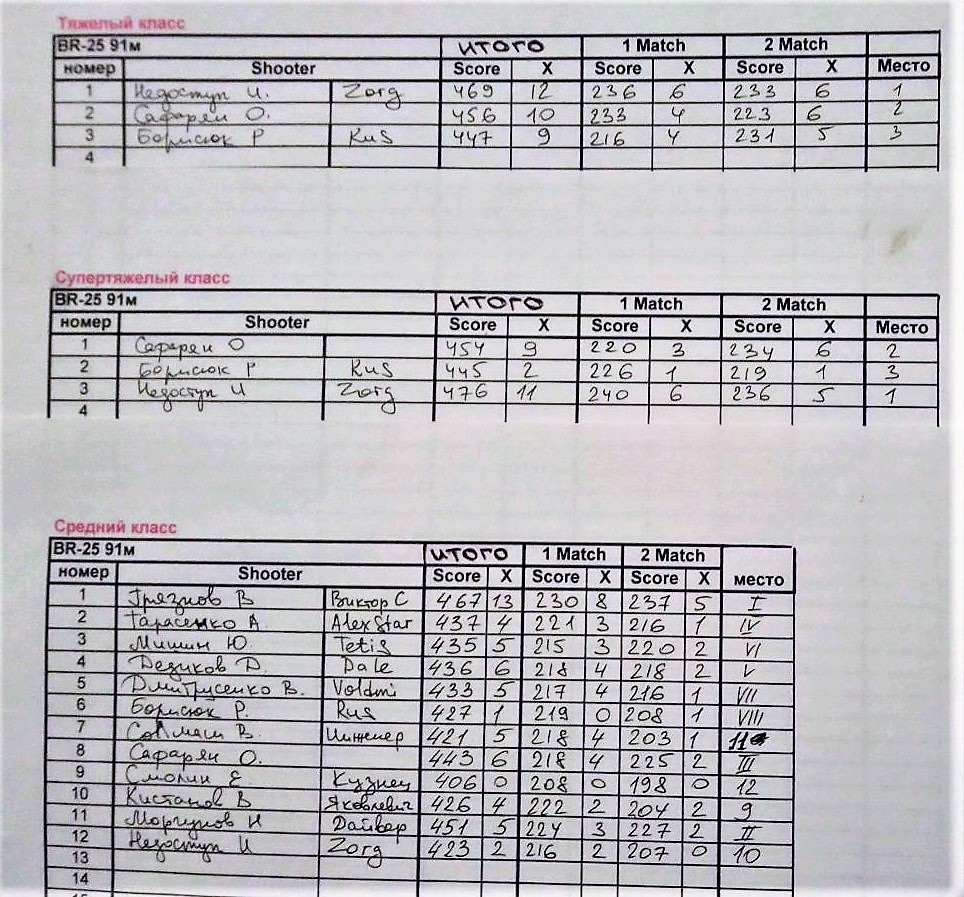 Тяжелый класс
BR-25 91м ИТОГО 1 Match 2 Match
номер Shooter Score X Score X Score X Место
1 Недоступ И. Zorg 469 12 236 6 233 6 1
2 Сафарян О. 456 10 233 4 223 6 2
3 Борисюк Р Rus 447 9 216 4 231 5 3
4
Супертяжелый класс
BR-25 91м ИТОГО 1 Match 2 Match
номер Shooter Score X Score X Score X Место
1 Сафарян О 454 9 220 3 234 6 2
2 Борисюк Р Rus 445 2 226 1 219 1 3
3 Недоступ И Zorg 476 11 240 6 236 5 1
4
Средний класс
BR-25 91м ИТОГО 1 Match 2 Match
номер Shooter Score X Score X Score X место
1 Грязнов В Виктор С 467 13 230 8 237 5 I
2 Тарасенко А. AlexStar 437 4 221 3 216 1 IV
3 Мишин Ю. Tetis 435 5 215 3 220 2 VI
4 Дезиков Д. Dale 436 6 218 4 218 2 V
5 Дмитрусенко В. Voldmi 433 5 217 4 216 1 VII
6 Борисюк Р. Rus 427 1 219 0 208 1 VIII
7 В. Инженер 421 5 218 4 203 1 11
8 Сафарян О. 443 6 218 4 225 2 III
9 Смолин Е Кузнец 406 0 208 0 198 0 12
10 Кистанов В Яковлевич 426 4 222 2 204 2 9
11 Моргунов И Дайвер 451 5 224 3 227 2 II
12 Недоступ И Zorg 423 2 216 2 207 0 10
13
14